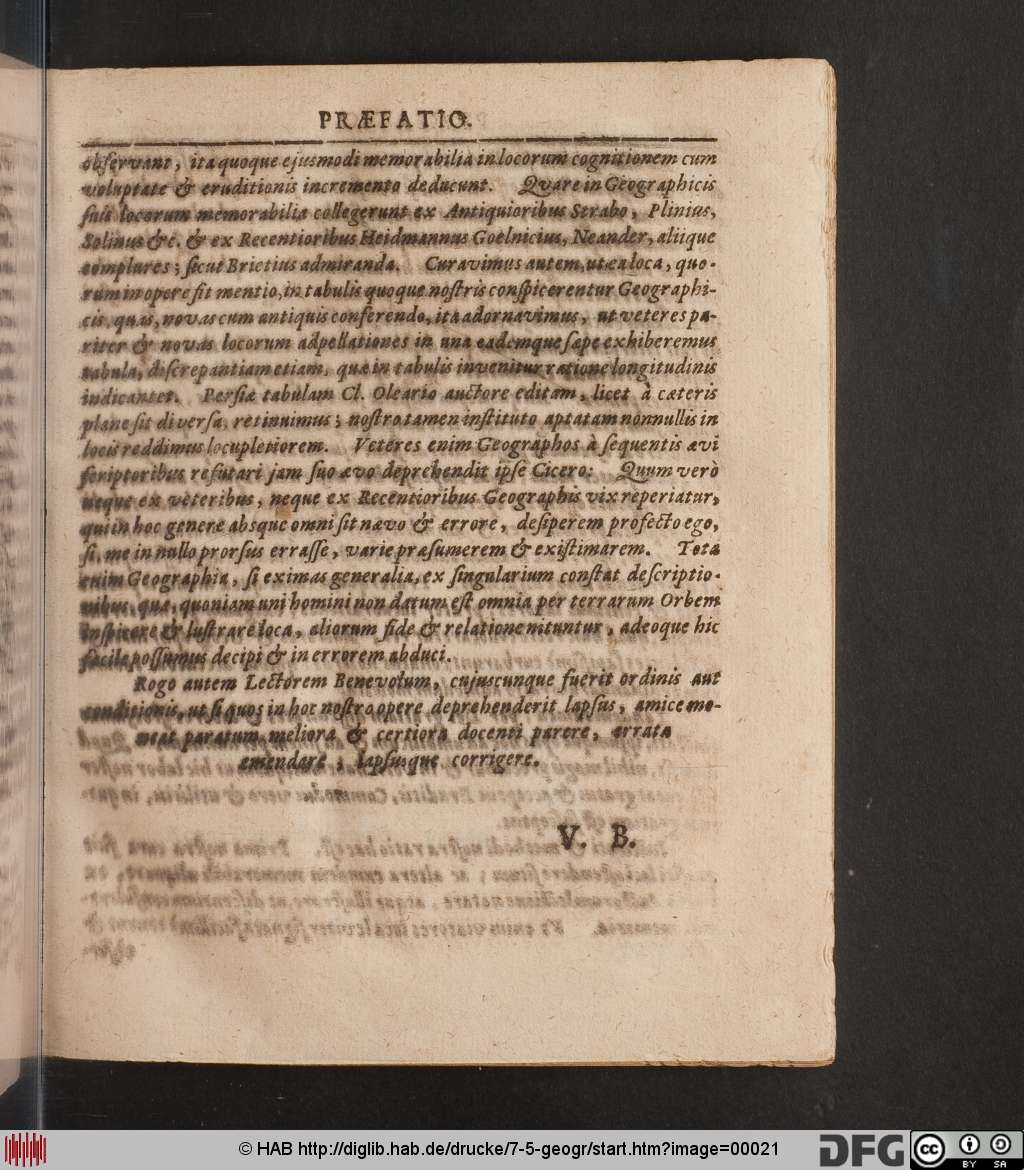 PRÆFATIO.
obſervant, ita quoque ejusmodi memorabilia in locorum cognitionem cum
voluptate & eruditionis incremento deducunt. Qvare in Geographicis
ſuis locorum memorabilia collegerunt ex Antiquioribus Strabo, Plinius,
Solinus &c. & ex Recentioribus Heidmannus Goelnicius, Neander, aliique
complures; ſicut Brietius admiranda. Curavimus autem, ut ea loca, quo-
rum in opere fit mentio, in tabulis quoque noſtris conſpicerentur Geographi-
cis, quas, novas cum antiquis conferendo, ita adornavimus, ut veteres pa-
riter & novas locorum adpellationes in una eademque ſæpe exhiberemus
tabula, diſcrepantiam etiam, quæ in tabulis invenitur ratione longitudinis
indicantes. Perſiæ tabulam Cl. Oleario auctore editam, licet à cæteris
plane ſit diverſa, retinuimus; noſtro tamen inſtituto aptatam nonnullis in
locis reddimus locupletiorem. Veteres enim Geographos à ſequentis ævi
ſcriptoribus refutari jam ſuo ævo deprehendit ipſe Cicero: Quum verò
neque ex veteribus, neque ex Recentioribus Geographis vix reperiatur,
qui in hoc genere absque omni ſit nævo & errore, deſiperem profecto ego,
ſi, me in nullo prorſus erraſſe, varie præſumerem & exiſtimarem. Tota
enim Geographia, ſi eximas generalia, ex ſingularium conſtat deſcriptio-
nibus, quæ, quoniam uni homini non datum eſt omnia per terrarum Orbem
inſpicere & luſtrare loca, aliorum fide & relatione nituntur, adeoque hic
facile poſſumus decipi & in errorem abduci.
Rogo autem Lectorem Benevolum, cujuscunque fuerit ordinis aut
conditionis, ut ſi quos in hoc noſtro opere deprehenderit lapſus, amice mo-
neat paratum meliora & certiora docenti parere, errata
emendare, lapſusque corrigere.
V. B.
© HAB http://diglib.hab.de/drucke/7-5-geogr/start.htm?image=00021
DFG
cc BY SA